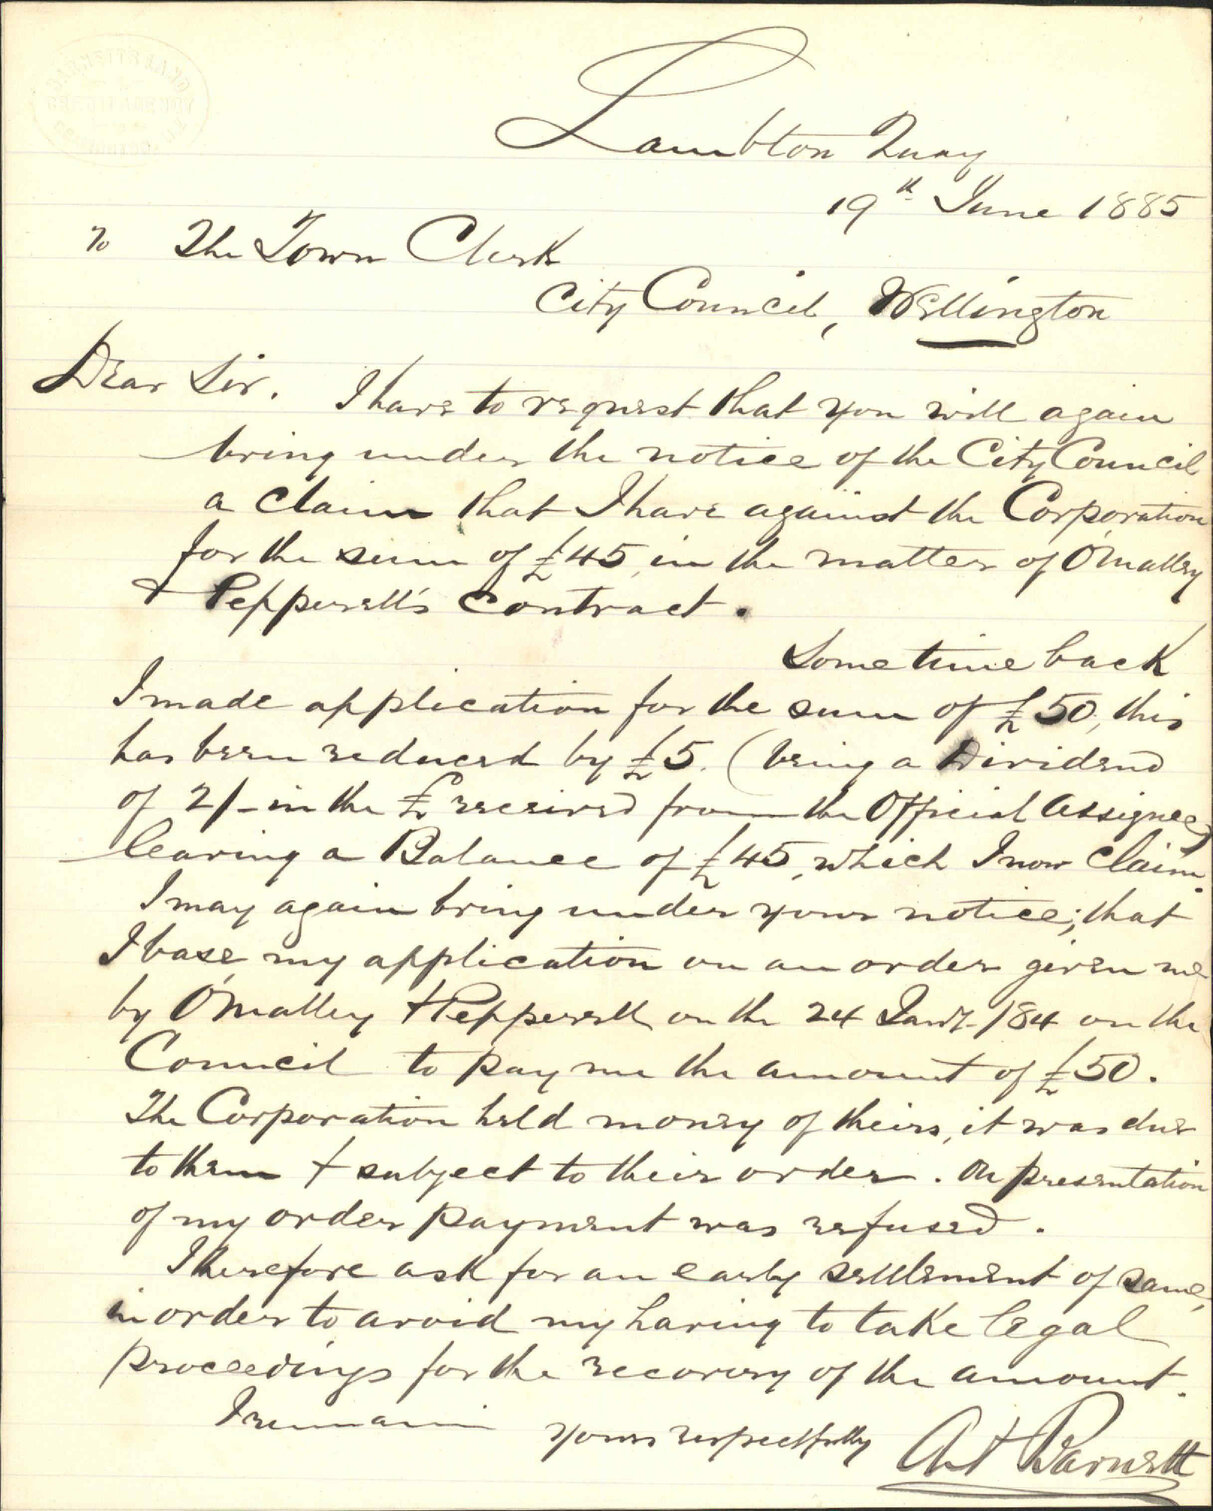 Lambton Quay
19th June 1885
To The Town Clerk
City Council, Wellington
Dear Sir. I have to request that you will again
bring under the notice of the City Council
a claim that I have against the Corporation
for the sum of £45, in the matter of O'Malley
& Pepperell's contract.
Sometime back
I made application for the sum of £50, this
has been reduced by £5. (being a Dividend
of 2/- in the £ received from the Official Assignee)
leaving a Balance of £45, which I now claim.
I may again bring under your notice; that
I base my application on an order given me
by O'Malley & Pepperell on the 24 Jany. /84 on the
Council to pay me the amount of £50.
The Corporation held money of theirs, it was due
to them & subject to their order. On presentation
of my order payment was refused.
I therefore ask for an early settlement of same,
in order to avoid my having to take legal
proceedings for the recovery of the amount.
I remain
yours respectfully
Barnett